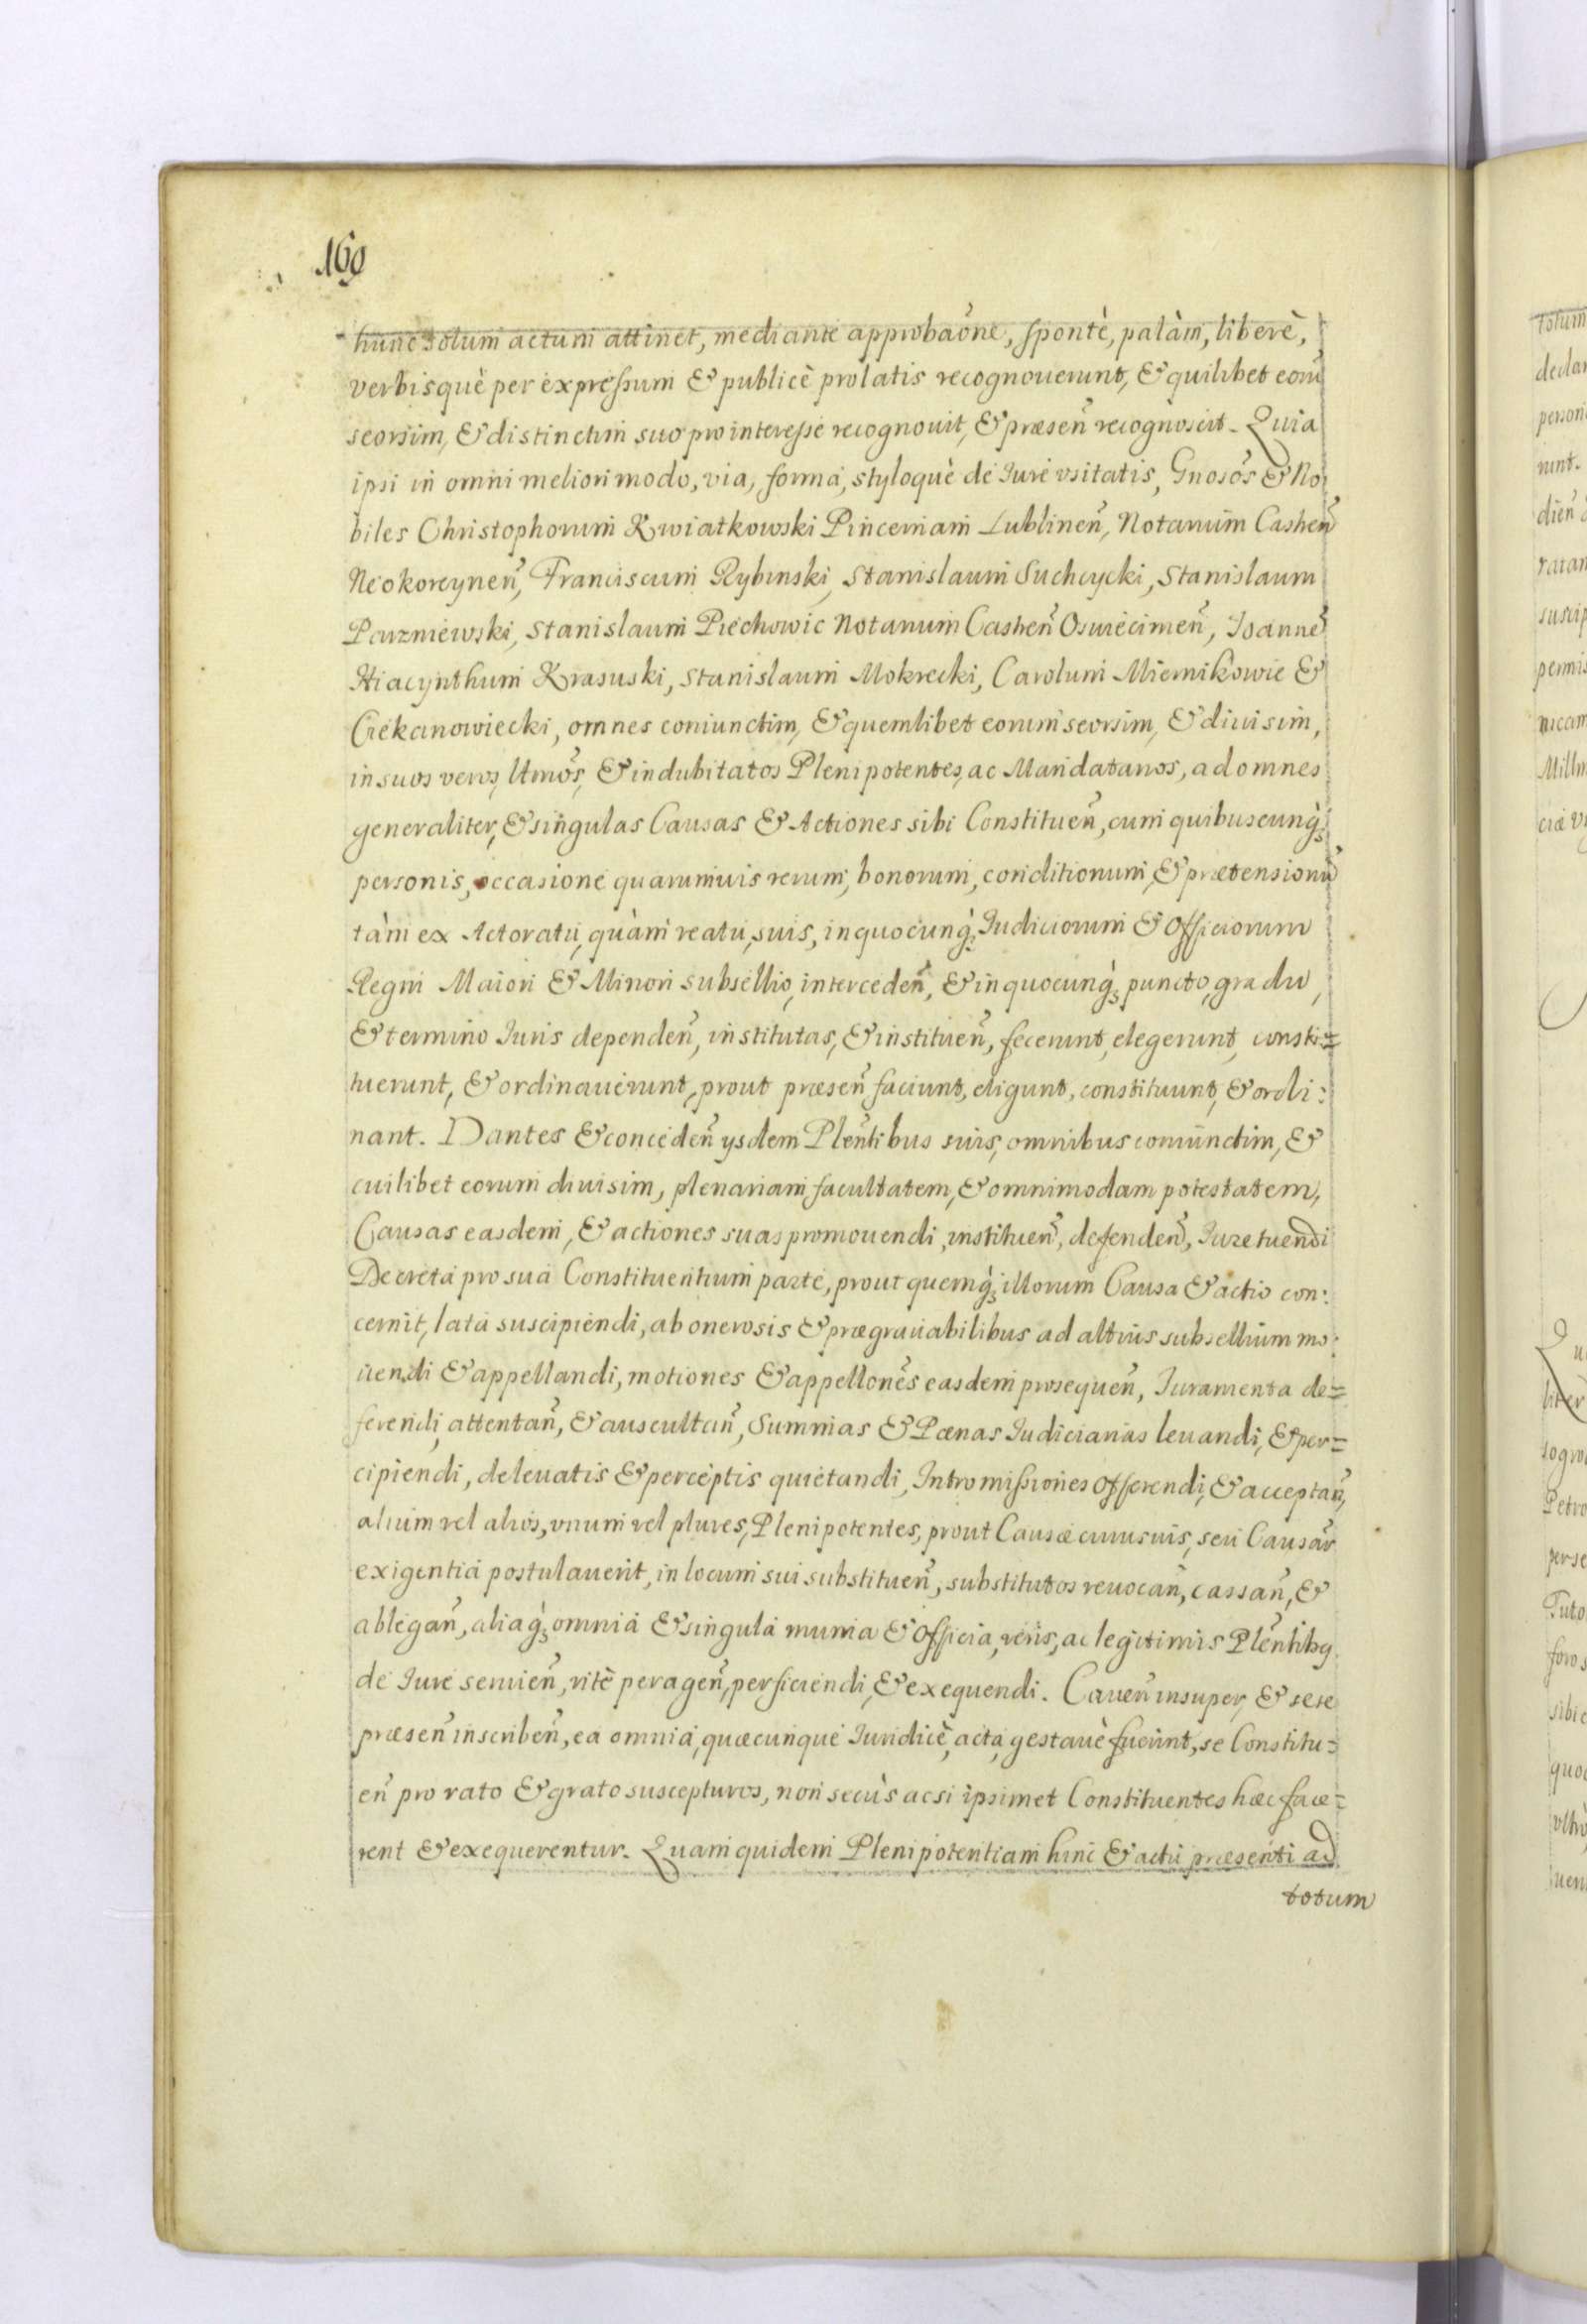 160
hunc totum actum attinet, mediante approbaõne, spontè, palàm, liberè,
verbisquè per expressum & publicè prolatis recognouerunt, & quilibet eorũ
seorsim, & distinctim suo pro interesse recognouit, & præseñ recognoscit. Quia
ipsi in omni meliori modo, via, forma, styloquè de Iure vsitatis, Gnosos̃ & No:
biles Christophorum Kwiatkowski Pincernam Lublineñ, Notarium Castreñ
Neokorcyneñ, Franciscum Rybinski, Stanislaum Suchcycki, Stanislaum
Parzniewski, Stanislaum Piechowic Notarium Castreñ Oswiecimeñ, Ioannẽ
Hiacynthum Krasuski, Stanislaum Mokrecki, Carolum Miernikowic &
Ciekanowiecki, omnes coniunctim, & quemlibet eorum seorsim, & diuisim,
in suos veros, ltmõs, & indubitatos Plenipotentes, ac Mandatarios, ad omnes
generaliter, & singulas Causas & Actiones sibi Constitueñ, cum quibuscunq̀;
personis, occasione quarumuis rerum, bonorum, conditionum, & prætensionũ
tàm ex Actoratu, quàm reatu, suis, in quocunq̀; Iudiciorum & Officiorum
Regni Maiori & Minori subsellio, intercedeñ, & in quocunq̀; puncto, gradu,
& termino Iuris dependeñ, institutas, & institueñ, fecerunt, elegerunt, consti=
tuerunt, & ordinauerunt, prout præseñ faciunt, eligunt, constituunt, & ordi:
nant. Dantes & concedeñ ysdem Pleñtibus suis, omnibus coniunctim, &
cuilibet eorum diuisim, plenariam facultatem, & omnimodam potestatem,
Causas easdem, & actiones suas promouendi, institueñ, defendeñ, Iure tuendi
Decreta pro sua Constituentium parte, prout quemq̀; illorum Causa & actio con:
cernit, lata suscipiendi, ab onerosis & prægrauabilibus ad altius subsellium mo:
uendi & appellandi, motiones & appellonẽs easdem prosequeñ, Iuramenta de=
ferendi, attentañ, & auscultañ, Summas & Pœnas Iudiciarias leuandi, & per=
cipiendi, de leuatis & perceptis quietandi, Intromissiones offerendi, & acceptañ,
alium vel alios, vnum vel plures, Plenipotentes, prout Causæ cuiusuis, seu Causar̃
exigentia postulauerit, in locum sui substitueñ, substitutos reuocañ, cassañ, &
ablegañ, aliaq̀; omnia & singula munia & Officia, veris, ac legitimis Pleñtibq
de Iure seruieñ, ritè perageñ, perficiendi, & exequendi. Caueñ insuper, & sese
præseñ inscribeñ, ea omnia, quæcunque Iuridicè, acta, gestauè fuerint, se Constitu=
eñ pro rato & grato suscepturos, non secùs ac si ipsimet Constituentes hæc face=
rent & exequerentur. Quam quidem Plenipotentiam hinc & actu præsenti ad
totum